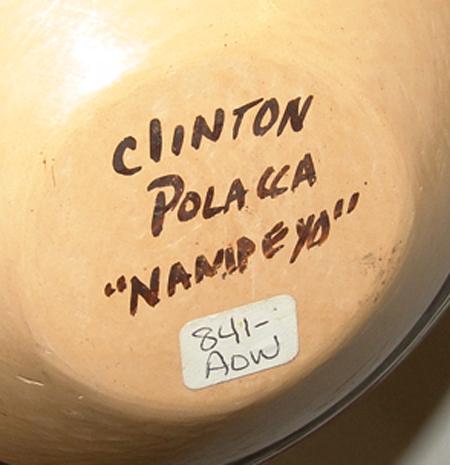 CLINTON
POLACCA
"NAMPEYO"
841-
AOW